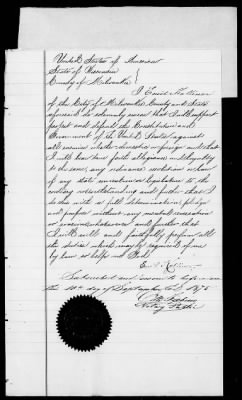 United States of America
State of Wisconsin
County of Milwaukee }
I Emil
of the City of Milwaukee County and State
aforesaid do solemnly swear that I will support
protect and defend the Constitution and
Government of the United States against
all enemies whether domestic or foreign and that
I will bear true faith allegiance and loyalty
to the same, any ordinance resolution or law
of any state convention or legislature to the
contrary notwithstanding and further that I
do this with a full determination pledge
and purpose without any mental reservation
or evasion whatsoever and further that
I will well and faithfully perform all
the duties which may be required of me
by law so help me God
Emil
Subscribed and sworn to before me
this 10th day of September A.D. 187
Notary Public